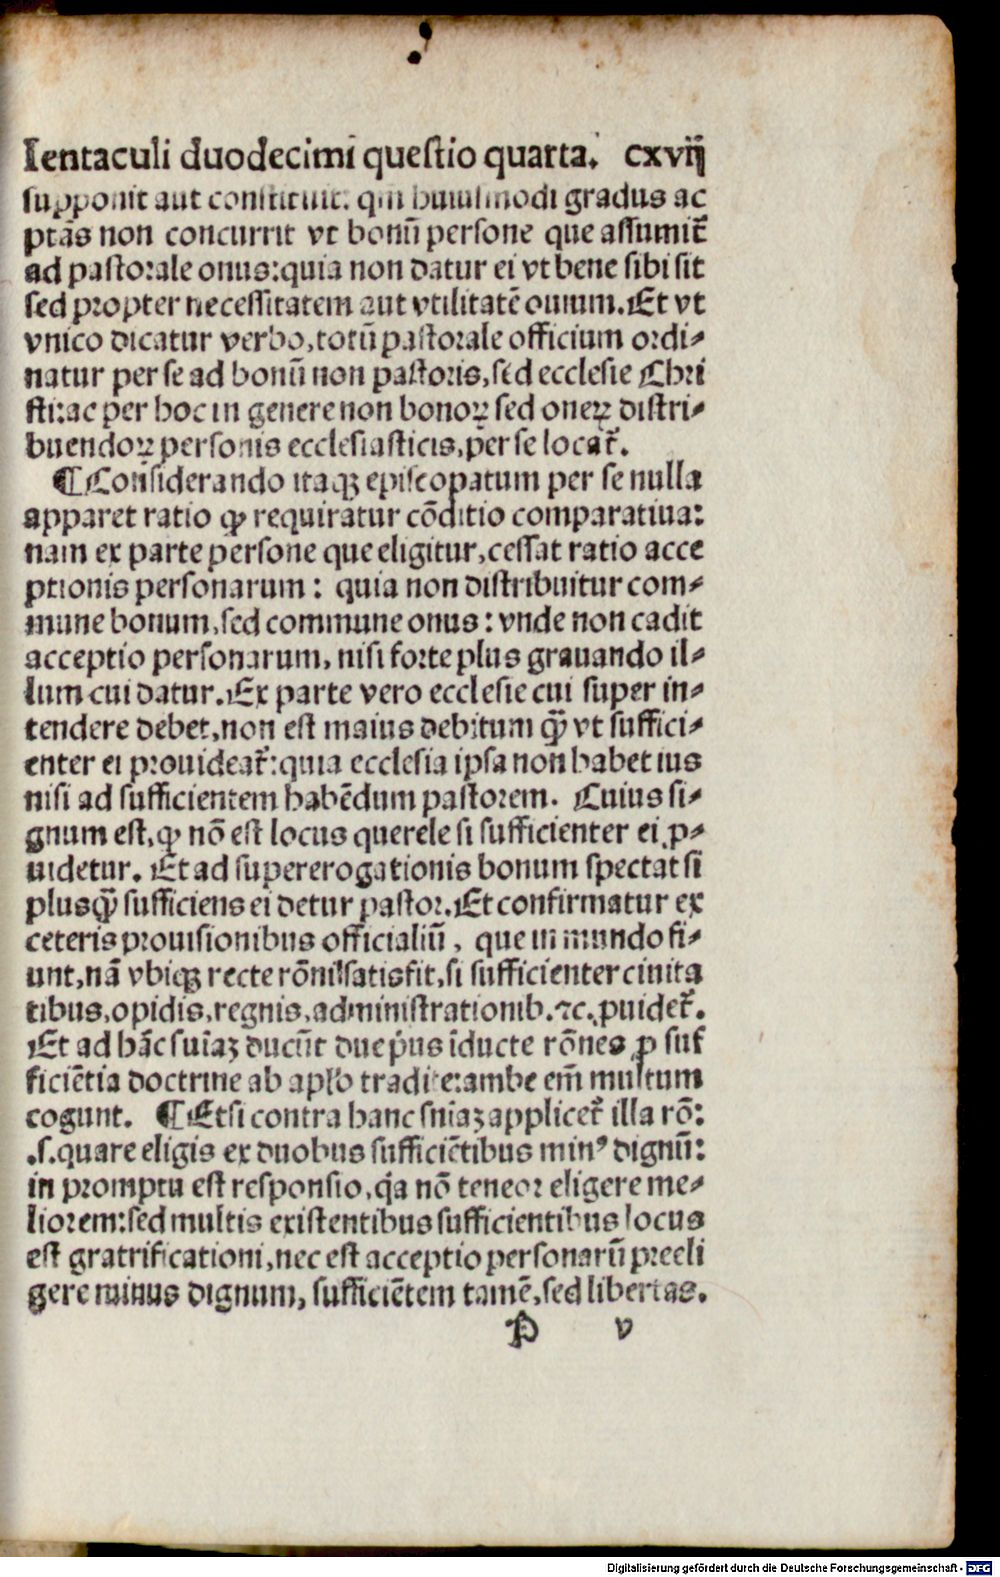 Ientaculi duodecimi questio quarta. cxvij
supponit aut constituit. qm huiusmodi gradus ac
ptās non concurrit vt bonū persone que assumit̄
ad pastorale onus:quia non datur ei vt bene sibi sit
sed propter necessitatem aut vtilitatē ouium.Et vt
vnico dicatur verbo,totū pastorale officium ordi⸗
natur per se ad bonū non pastoris,sed ecclesie Chri
sti:ac per hoc in genere non bonoꝝ sed oneꝝ distri⸗
buendoꝝ personis ecclesiasticis,per se locat̄.
¶Considerando itaqꝫ episcopatum per se nulla
apparet ratio ꝙ requiratur cōditio comparatiua:
nam ex parte persone que eligitur,cessat ratio acce
ptionis personarum: quia non distribuitur com⸗
mune bonum,sed commune onus:vnde non cadit
acceptio personarum, nisi forte plus grauando il⸗
lum cui datur.Ex parte vero ecclesie cui super in⸗
tendere debet,non est maius debitum ꝙ̄ vt suffici⸗
enter ei prouideat̄:quia ecclesia ipsa non habet ius
nisi ad sufficientem habēdum pastorem. Cuius si⸗
gnum est,ꝙ nō est locus querele si sufficienter ei ꝓ⸗
uidetur. Et ad supererogationis bonum spectat si
plusꝙ̄ sufficiens ei detur pastor.Et confirmatur ex
ceteris prouisionibus officialiū, que in mundo fi⸗
unt,nā vbiqꝫ recte rōni satisfit,si sufficienter ciuita
tibus,opidis,regnis,administrationib.⁊c.ꝓuidet̄.
Et ad hāc suīaꝫ ducūt due pͥus īducte rōnes ꝓ suf
ficiētia doctrine ab aplo tradite:ambe em̄ multum
cogunt. ¶Etsi contra hanc sniāꝫ applicet̄ illa rō:
.s.quare eligis ex duobus sufficiētibus minꝰ dignū:
in promptu est responsio,qͥa nō teneor eligere me⸗
liorem:sed multis existentibus sufficientibus locus
est gratrificationi,nec est acceptio personarū preeli
gere minus dignum, sufficiētem tamē,sed libertas.
P v
Digitalisierung gefördert durch die Deutsche Forschungsgemeinschaft - DFG